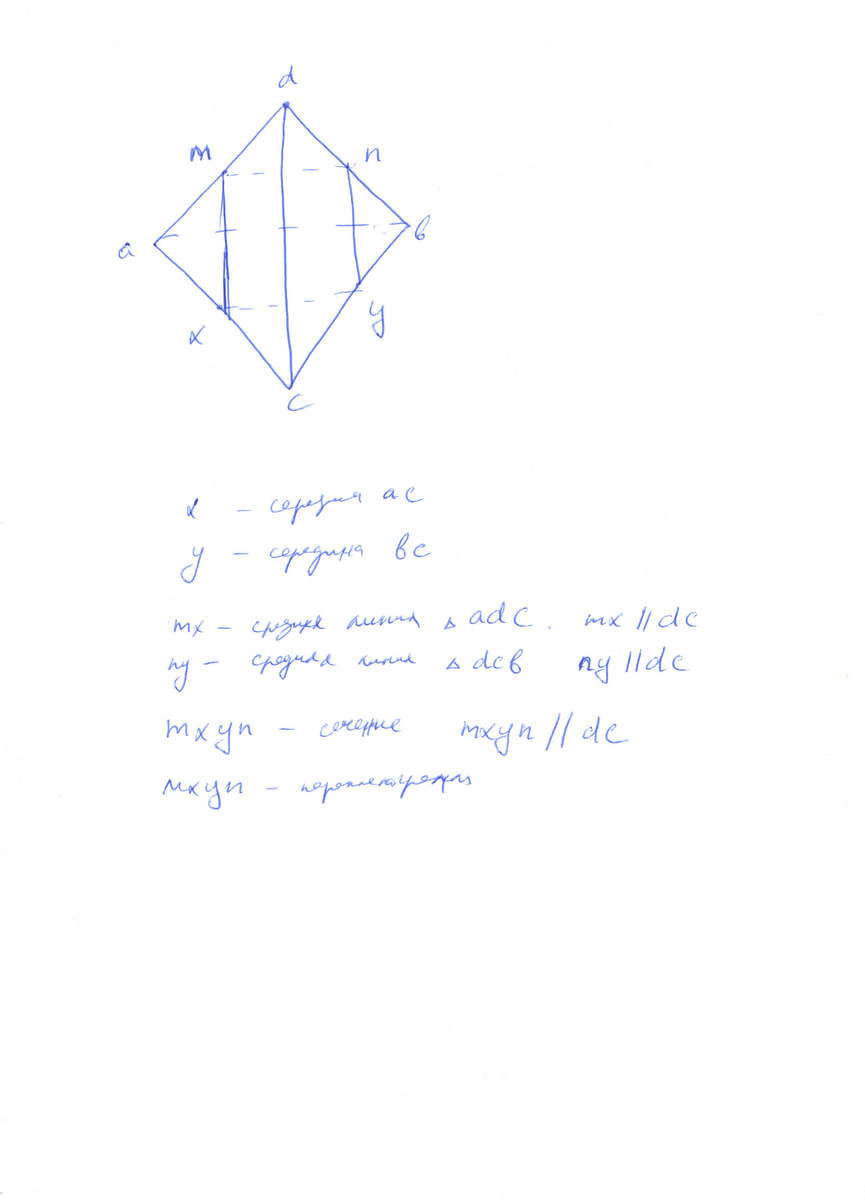 d
m
n
a
в
x
y
c
x – середина ac
y – середина вc
mx – средняя линия △ adc. mx // dc
ny – средняя линия △ dcв ny // dc
mxyn – сечение mxyn // dc
mxyn – параллелограмм